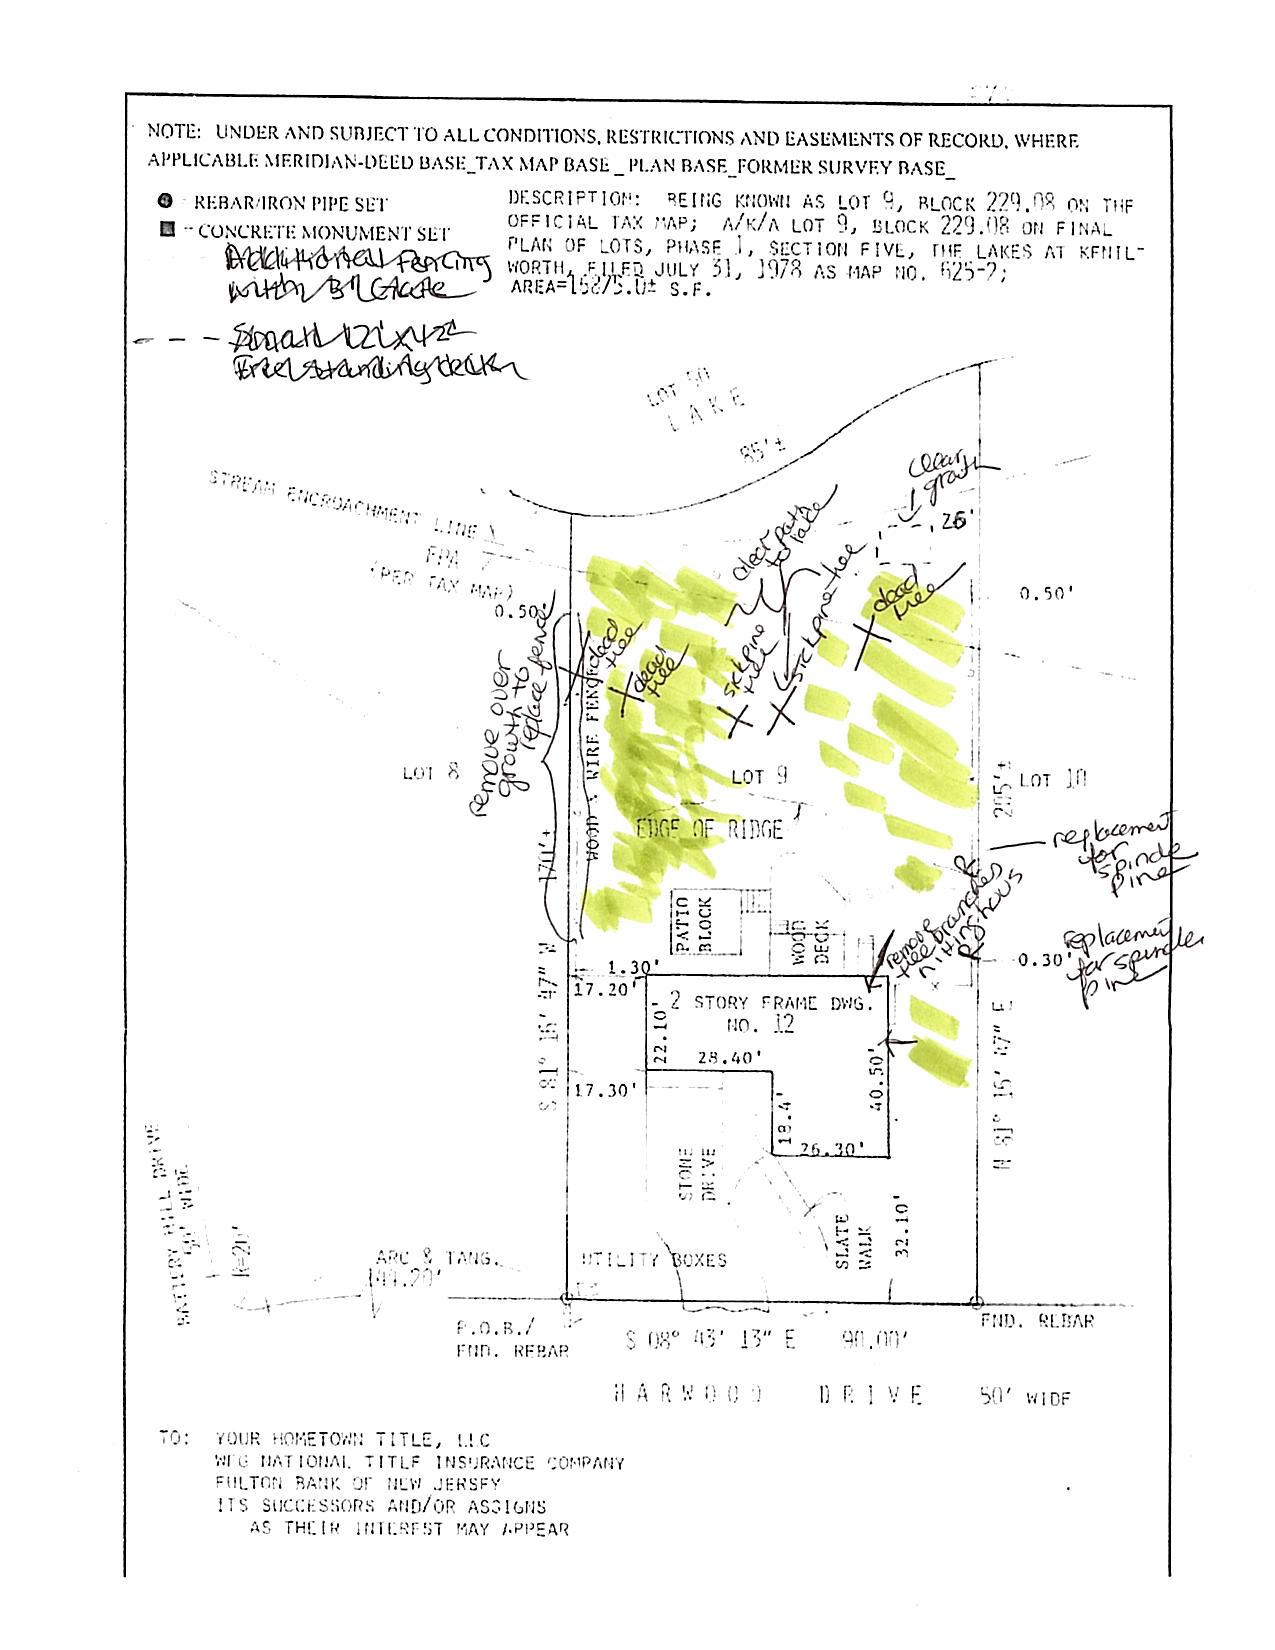 NOTE: UNDER AND SUBJECT TO ALL CONDITIONS, RESTRICTIONS AND EASEMENTS OF RECORD, WHERE
APPLICABLE MERIDIAN-DEED BASE_TAX MAP BASE _ PLAN BASE_FORMER SURVEY BASE_
- REBAR/IRON PIPE SET
- CONCRETE MONUMENT SET
DESCRIPTION: BEING KNOWN AS LOT 9, BLOCK 229.08 ON THE
OFFICIAL TAX MAP; A/K/A LOT 9, BLOCK 229.08 ON FINAL
PLAN OF LOTS, PHASE 1, SECTION FIVE, THE LAKES AT KENIL-
WORTH, FILED JULY 31, 1978 AS MAP NO. 625-2;
AREA= S.F.
Additional Fencing
with Gate
Freestanding deck
LOT 50
LAKE
86'±
STREAM ENCROACHMENT LINE
FPA
(PER TAX MAP)
clear growth
26'
clear path to lake
0.50'
0.50'
remove over growth to replace fence
dead tree
dead tree
sick pine tree
sick pine tree
dead tree
WOOD & WIRE FENCE
LOT 8
LOT 9
LOT 10
205'±
170'±
EDGE OF RIDGE
replacement for spindle pine
R
PATIO BLOCK
WOOD DECK
remove tree branches hitting hous
R
replacement for spindle pine
0.30'
1.30'
17.20'
2 STORY FRAME DWG.
NO. 12
22.10'
28.40'
40.50'
17.30'
18.4'
26.30'
S 81° 16' 47" W
N 81° 16' 47" E
STONE DRIVE
SLATE WALK
32.10'
BATTERY HILL DRIVE
50' WIDE
R=20'
ARC & TANG.
UTILITY BOXES
P.O.B./
FND. REBAR
S 08° 43' 13" E 90.00'
FND. REBAR
HARWOOD DRIVE 50' WIDE
TO: YOUR HOMETOWN TITLE, LLC
WFG NATIONAL TITLE INSURANCE COMPANY
FULTON BANK OF NEW JERSEY
ITS SUCCESSORS AND/OR ASSIGNS
AS THEIR INTEREST MAY APPEAR